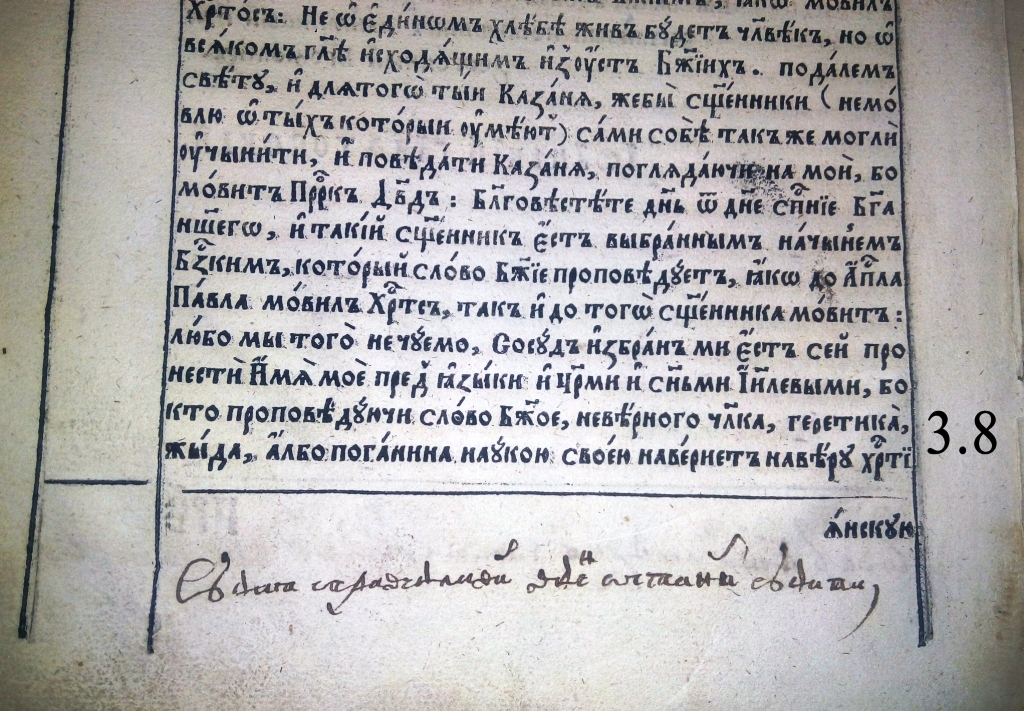 мовилъ
Хр҇тосъ: Не ѿ є҆ди́номъ хлѣ́бѣ живъ бу́детъ чл҃вѣкъ, но ѿ
всѧ́комъ гл҃ѣ и҆сходѧ́щимъ и҆зоу҆стъ Бж҃їихъ. пода́лемъ
свѣ́ту, и҆ длѧтогѡ̀ ты́и Каза́нѧ, жебы̀ сщ҃е́нники (немо́-
влю ѿ ты́хъ кото́рыи оу҆мѣ́ютъ) са́ми собѣ̀ такъже моглѝ
оу҆чыни́ти, и҆ повѣда́ти Каза́нѧ, поглѧда́ючи на моѝ, бо
мо́витъ Пррⷪ҇къ Дв҃дъ: Бл҃говѣстѣ́те дн҃ь ѿ дн҃е сп҃нїе Бг҃а
на́шегѡ, и҆ таки́й сщ҃е́нникъ є҆́стъ выбра́ннымъ начы́немъ
Бз҃кимъ, кото́рый сло́во Бж҃їе проповѣ́дуетъ, ꙗ҆́кѡ до А҆пⷭ҇ла
Па́вла мо́вилъ Хрⷭ҇тсъ, такъ и҆ до тогѡ̀ сщ҃е́нника мо́витъ:
лю́бо мы того̀ не чу́емо, Сосу́дъ и҆збра́нъ ми є҆́стъ сей про
нестѝ И҆́мѧ моѐ пред̾ ꙗ҆зы́ки и҆ Цр҃ми и҆ сн҃ьми І҆и҃левыми, бо
кто проповѣ́дуючи сло́во Бж҃ое, невѣ́рного чл҃ка, геретика̀,
жы́да, а҆́лбо пога́нина нау́кою свое́ю наве́рнетъ навѣ́ру хрⷭ҇тї
ѧ́нскую
3.8